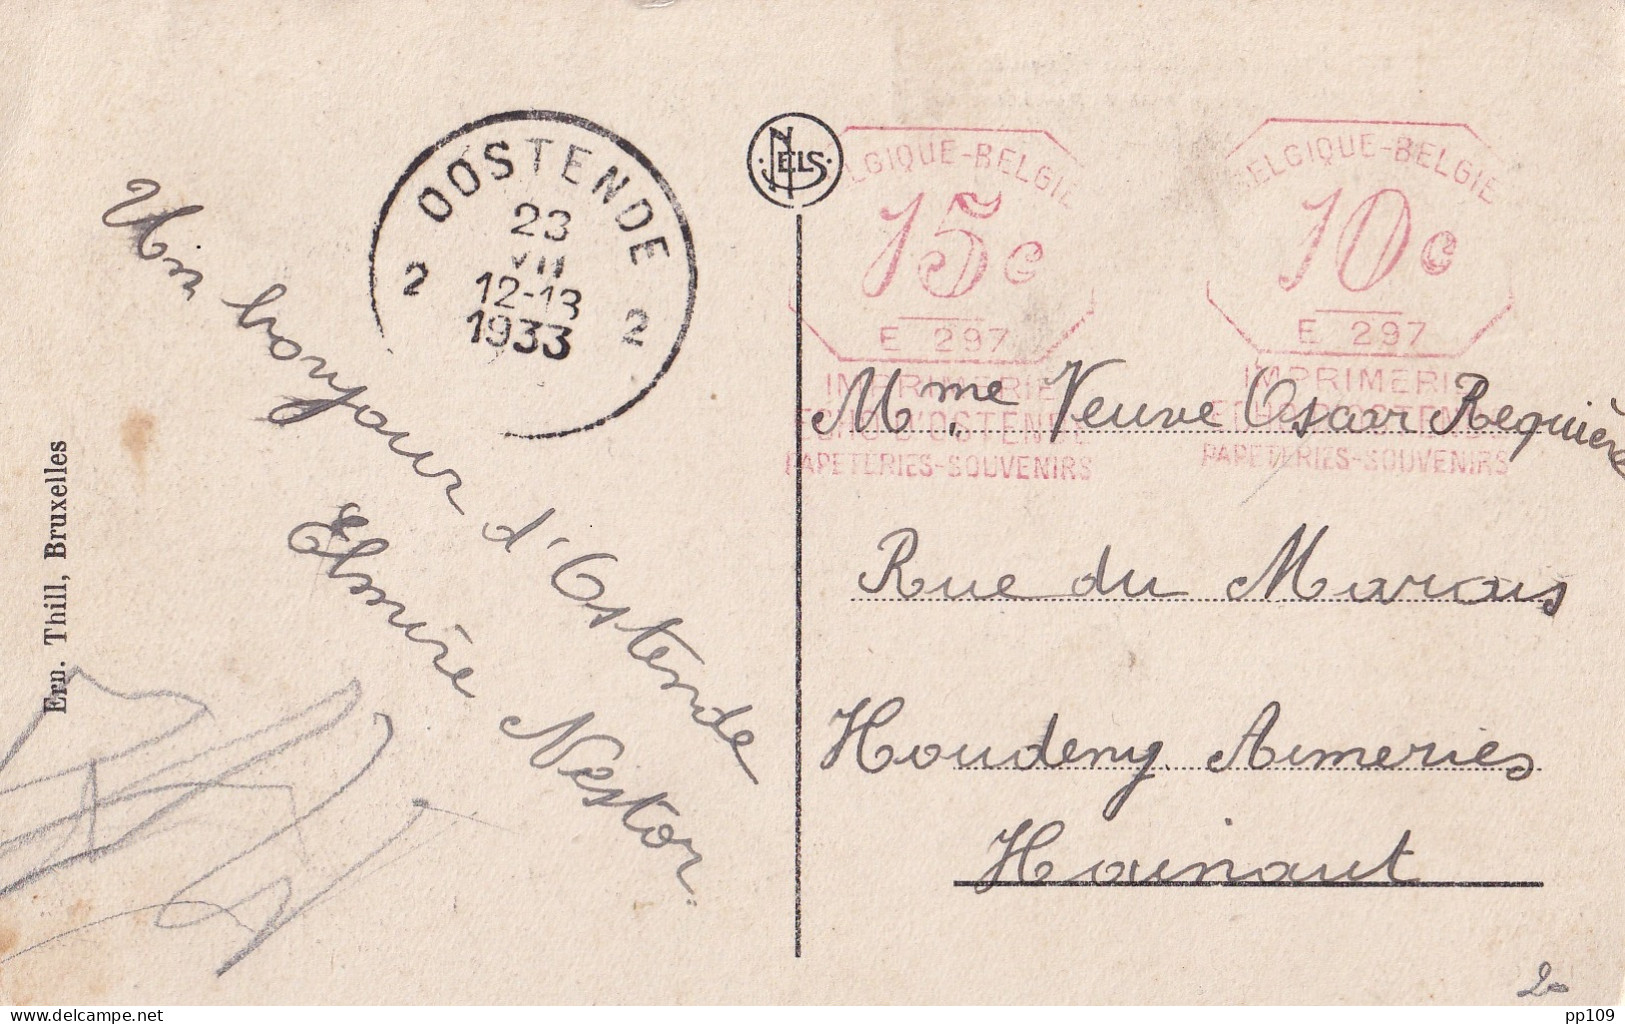 OOSTENDE
23
VII
12-13
1933
2 2
NELS
BELGIQUE-BELGIE
15c
E 297
IMPRIMERIE
ECHO D'OSTENDE
PAPETERIES-SOUVENIRS
BELGIQUE-BELGIE
10c
E 297
IMPRIMERIE
ECHO D'OSTENDE
PAPETERIES-SOUVENIRS
Un bonjour d'Ostende
Elmire Nestor
Ern. Thill, Bruxelles
Mme Veuve Oscar Requière
Rue du Marais
Houdeng Aimeries
Hainaut
2-
delcampe.net
pp109